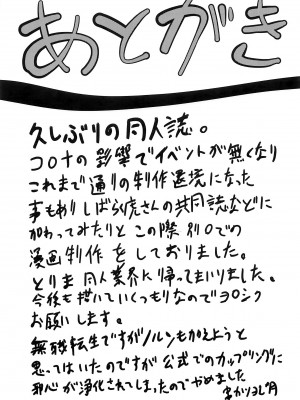 あとがき
久しぶりの同人誌。
コロナの影響でイベントが無くなり
これまで通りの制作環境になった
事もありしばらく虎さんの共同誌などに
加わってみたりと この際 別口での
漫画制作 をしておりました。
とりま 同人業界に帰ってまいりました。
今後も描いていくつもりなのでヨロシク
お願いします。
無職転生ですがノルンも加えようと
思ってはいたのですが 公式でのカップリングに
邪心が浄化されてしまったのでやめました